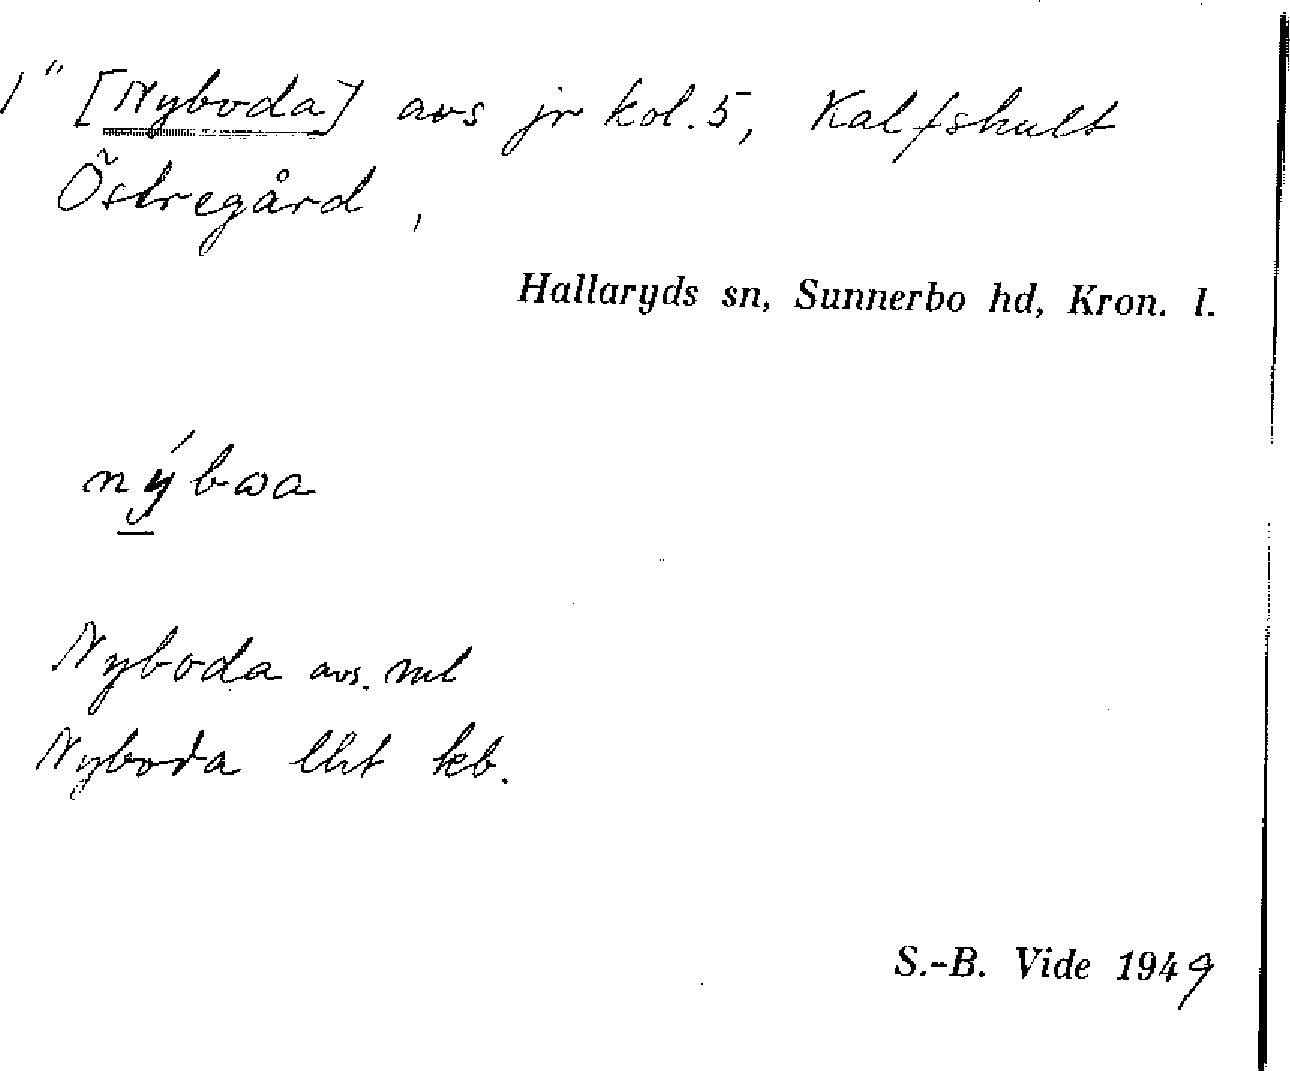 1" [Nyboda] avs jr kol. 5, Kalfshult
Östregård,
Hallaryds sn, Sunnerbo hd, Kron. l.
nýbωa
Nyboda avs. ml
Nyboda lht kb.
S.-B. Vide 1949